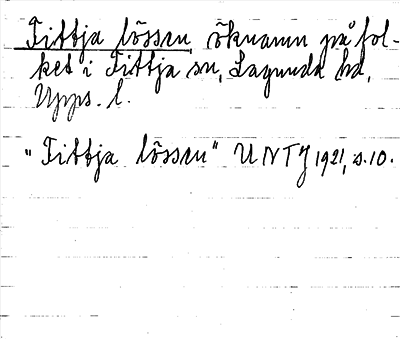 Fittja lössen öknamn på fol-
ket i Fittja sn, Lagunda hd,
Upps. l.
"Fittja lössen" UNTJ 1921, s. 10.